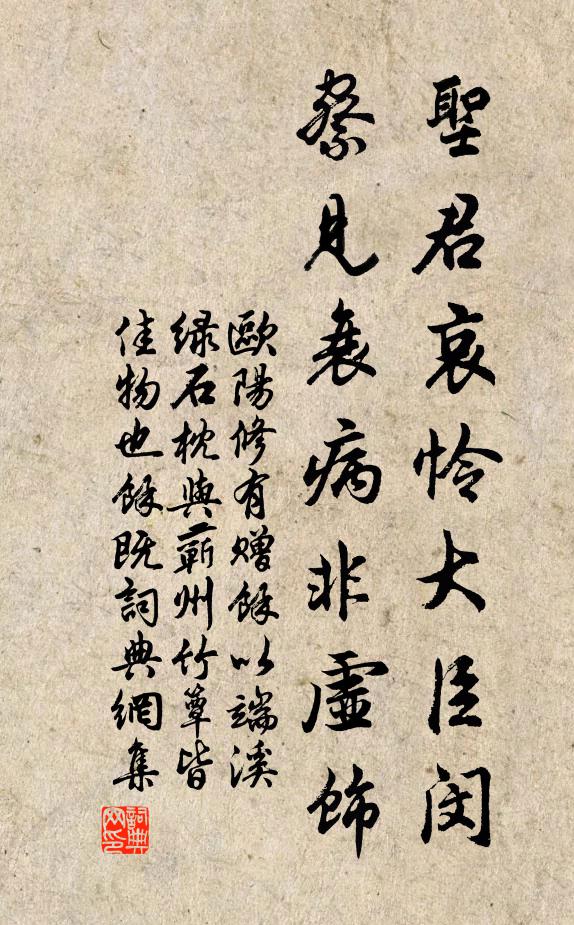 聖君哀怜大臣閔
察見衰病非虛飾
歐陽修有贈餘以端溪
绿石枕與蘄州竹簟皆
佳物也餘既詞典網集
詞典網印